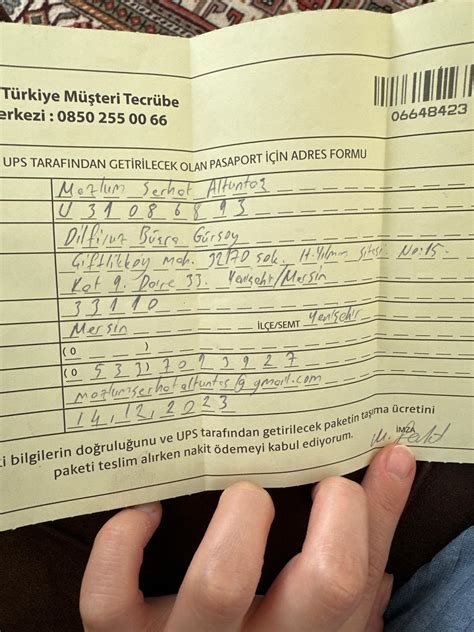 Türkiye Müşteri Tecrübe
erkezi : 0850 255 00 66
06648423
UPS TARAFINDAN GETİRİLECEK OLAN PASAPORT İÇİN ADRES FORMU
Mazlum Serhat Altuntaş
U 31086893
Dilfiruz Büşra Gürsoy
Çiftlikköy mah. 32170 sok. H. Yılmaz Sitesi No:15
Kat 9. Daire 33. Yenişehir/Mersin
33110
Mersin İLÇE/SEMT Yenişehir
(0 )
(0 533) 7093927
mazlumserhataltuntas@gmail.com
14.12.2023
ki bilgilerin doğruluğunu ve UPS tarafından getirilecek paketin taşıma ücretini
paketi teslim alırken nakit ödemeyi kabul ediyorum.
İMZA